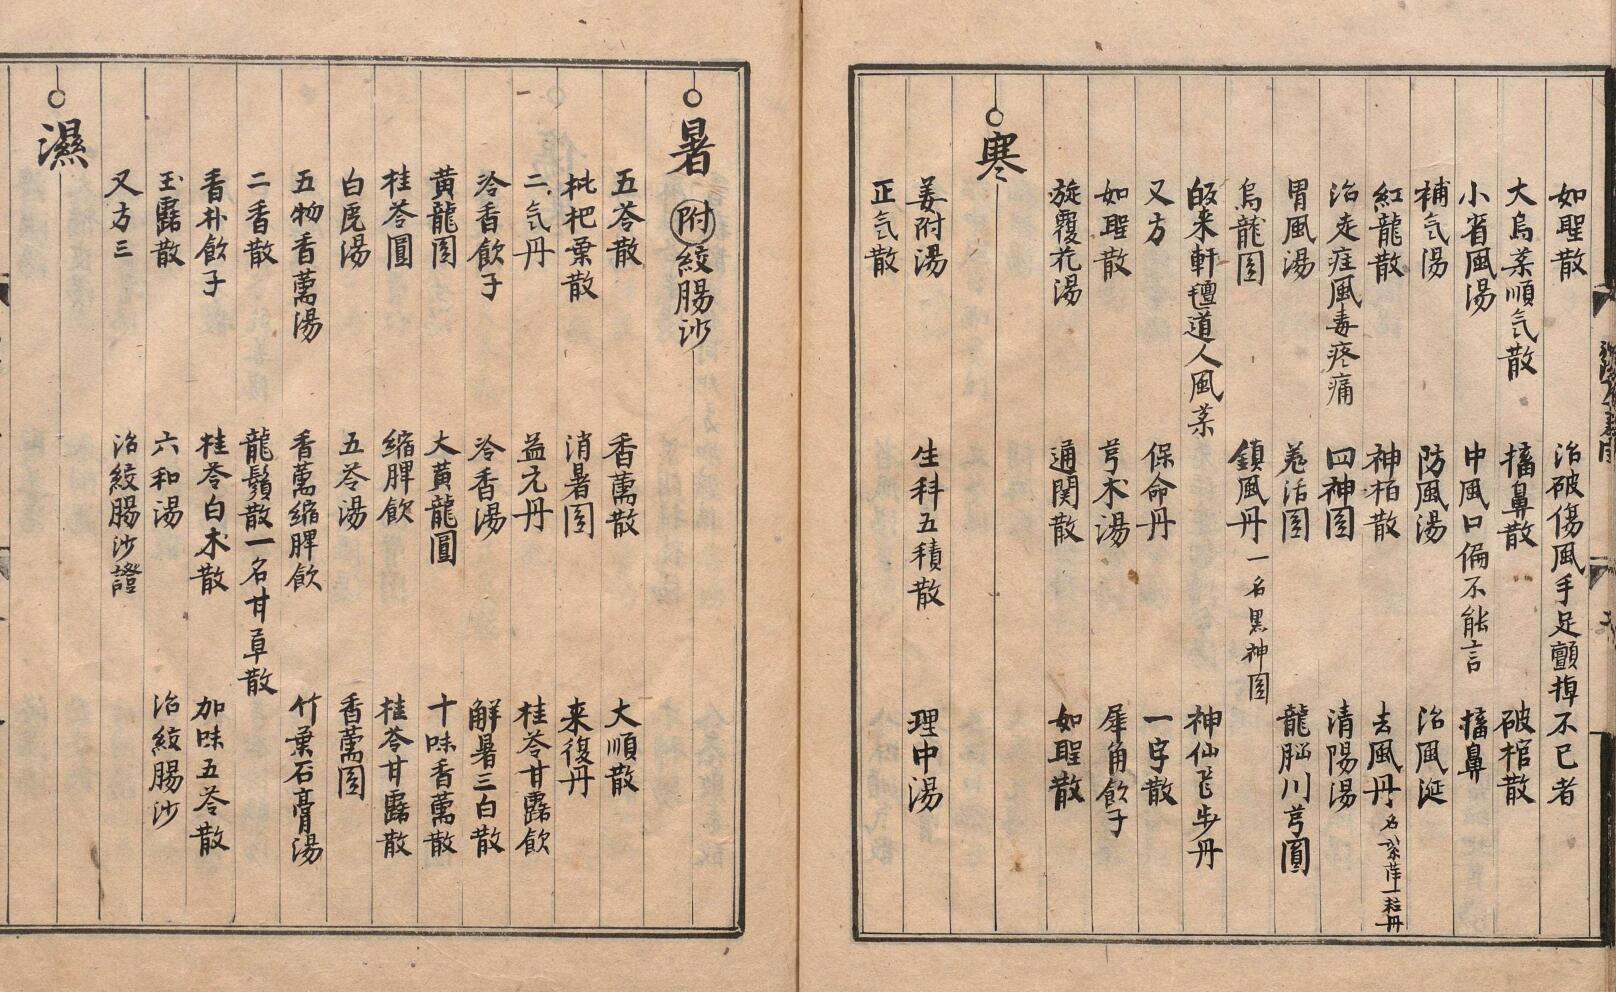 如聖散 治破傷風手足顫掉不已者
大烏茱順气散 搐鼻散 破棺散
小省風湯 中風口偏不能言 搐鼻
補气湯 防風湯 治風涎
紅龍散 神栢散 去風丹 名紫萍一粒丹
治走疰風毒疼痛 四神圎 清陽湯
胃風湯 羗活圎 龍腦川芎圓
烏龍圎 鎮風丹 一名黒神圎
皈来軒氊道人風茱 神仙飛步丹
又方 保命丹 一字散
如聖散 芎朮湯 犀角飲子
旋覆花湯 通関散 如聖散
○寒
姜附湯 生科五積散 理中湯
正气散
○暑 附 絞腸沙
五苓散 香薷散 大順散
枇杷葉散 消暑圎 来復丹
二气丹 益元丹 桂苓甘露飲
冷香飲子 冷香湯 解暑三白散
黄龍圎 大黄龍圓 十味香薷散
桂苓圓 縮脾飲 桂苓甘露散
白虎湯 五苓湯 香薷圎
五物香薷湯 香薷縮脾飲 竹葉石膏湯
二香散 龍鬚散一名甘草散
香朴飲子 桂苓白朮散 加味五苓散
玉露散 六和湯 治絞腸沙
又方三 治絞腸沙證
○濕